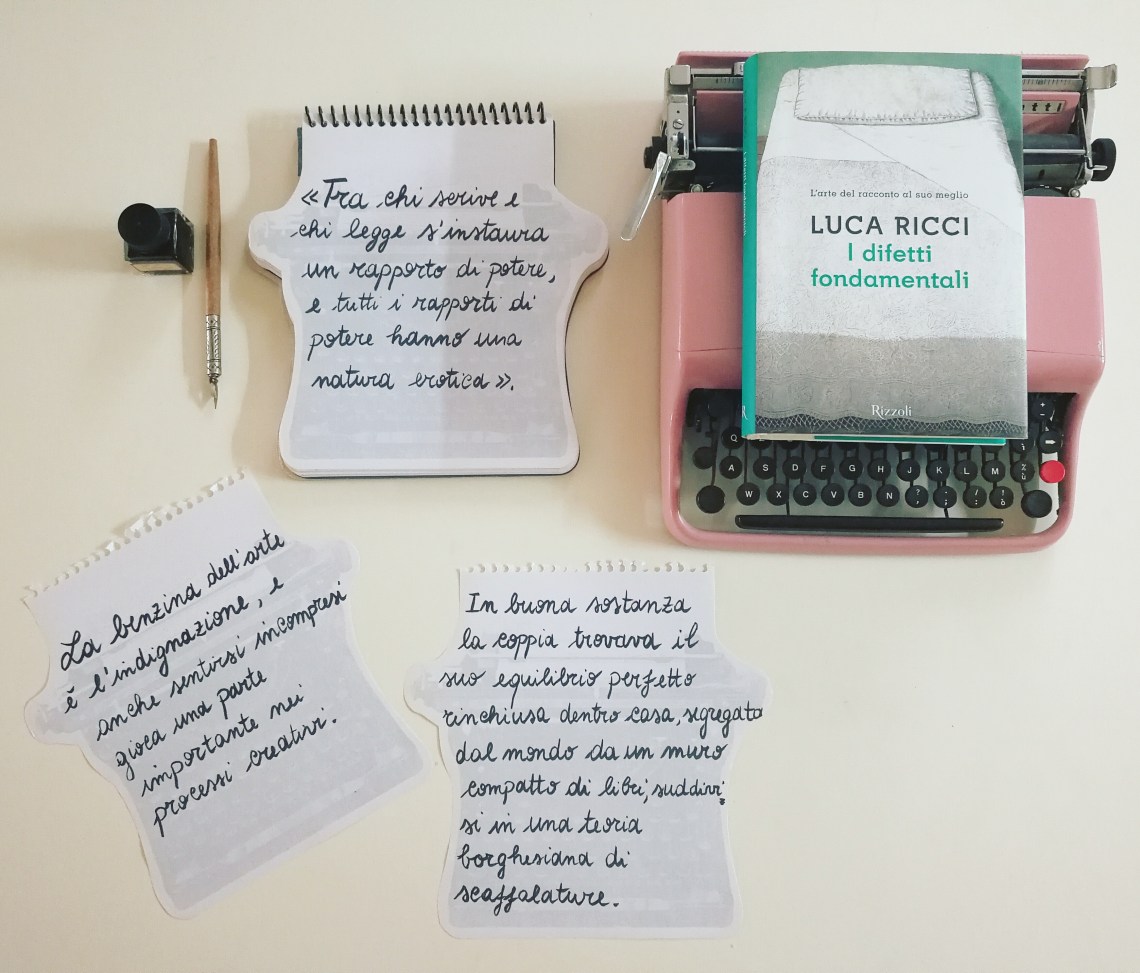 «Tra chi scrive e
chi legge s'instaura
un rapporto di potere,
e tutti i rapporti di
potere hanno una
natura erotica».
L'arte del racconto al suo meglio
LUCA RICCI
I difetti
fondamentali
Rizzoli
Q
A S D F G H J K L M
W X C V B N
La benzina dell'arte
è l'indignazione, e
anche sentirsi incompresi
gioca una parte
importante nei
processi creativi.
In buona sostanza
la coppia trovava il
suo equilibrio perfetto
rinchiusa dentro casa, segregata
dal mondo da un muro
compatto di libri, suddivi
si in una teoria
borghesiana di
scaffalature.